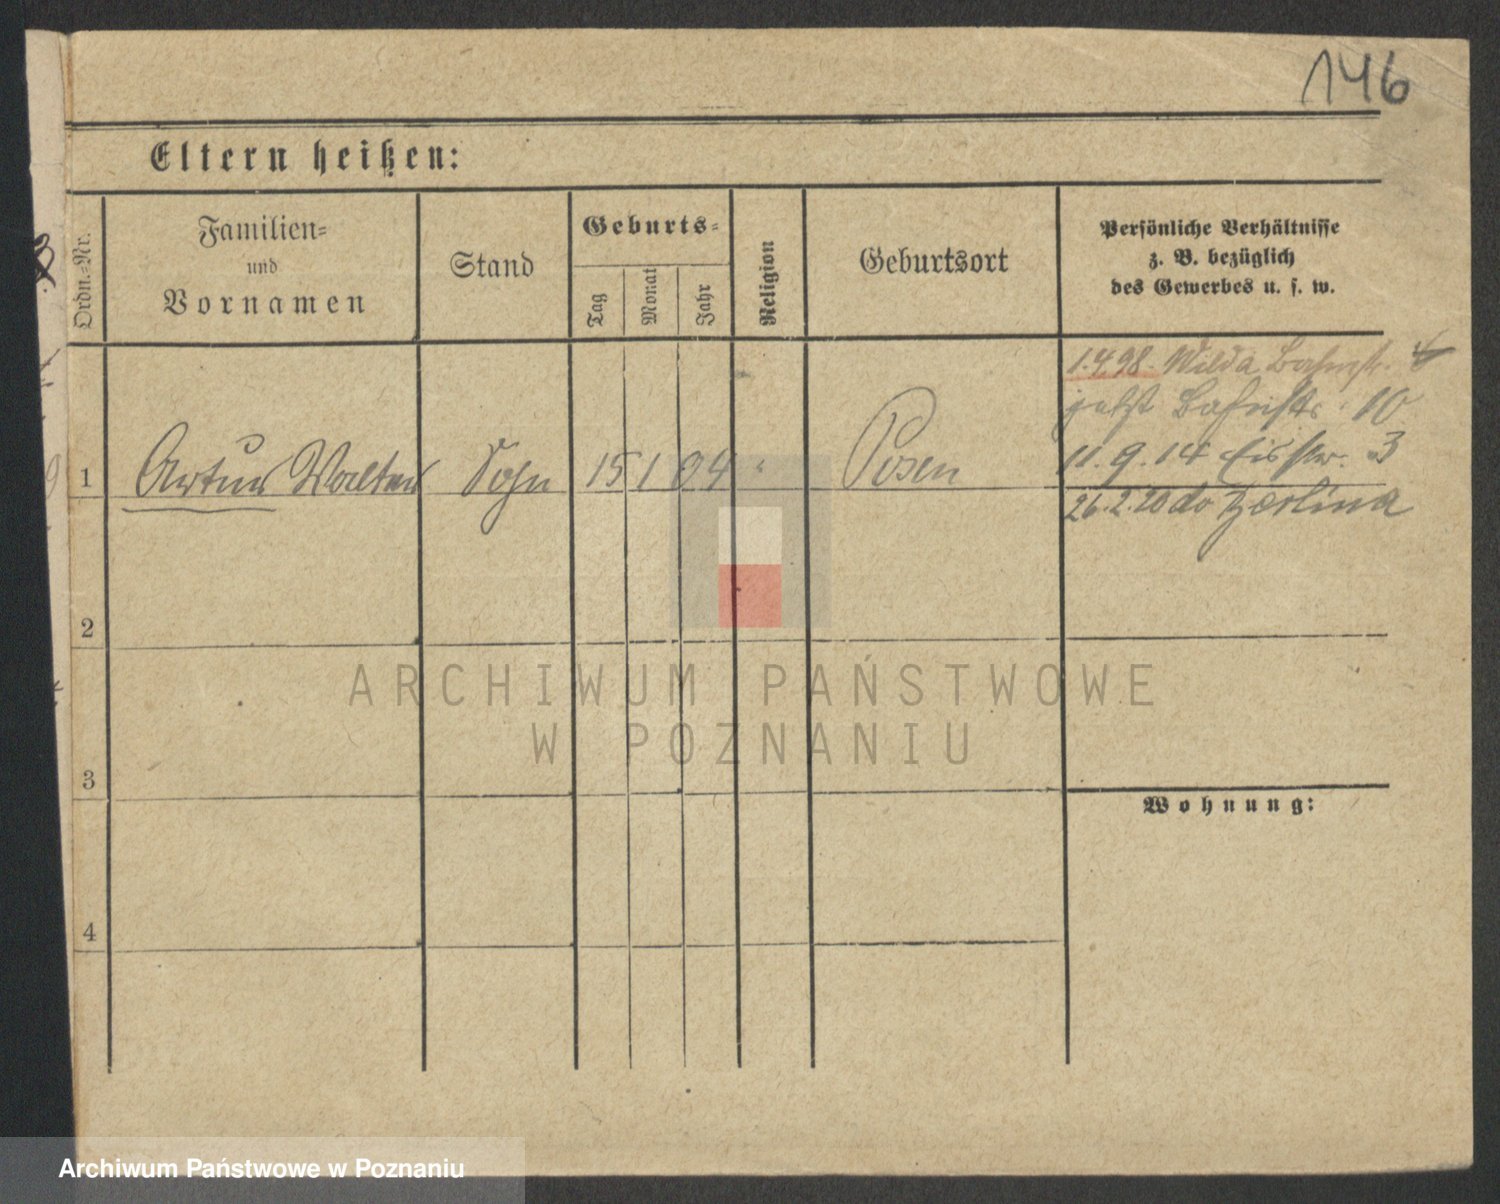 146
Eltern heißen:
Ordn.=Nr.
Familien=
und
Vornamen
Stand
Geburts=
Tag
Monat
Jahr
Religion
Geburtsort
Persönliche Verhältnisse
z. B. bezüglich
des Gewerbes u. s. w.
1.4.98. Wilda
jetzt Bahnstr. 10
11.9.14 3
1 Artur Walter Sohn 15 1 04 " Posen
26.2.20 do Berlina
2
3
Wohnung:
4
ARCHIWUM PAŃSTWOWE
W POZNANIU
Archiwum Państwowe w Poznaniu